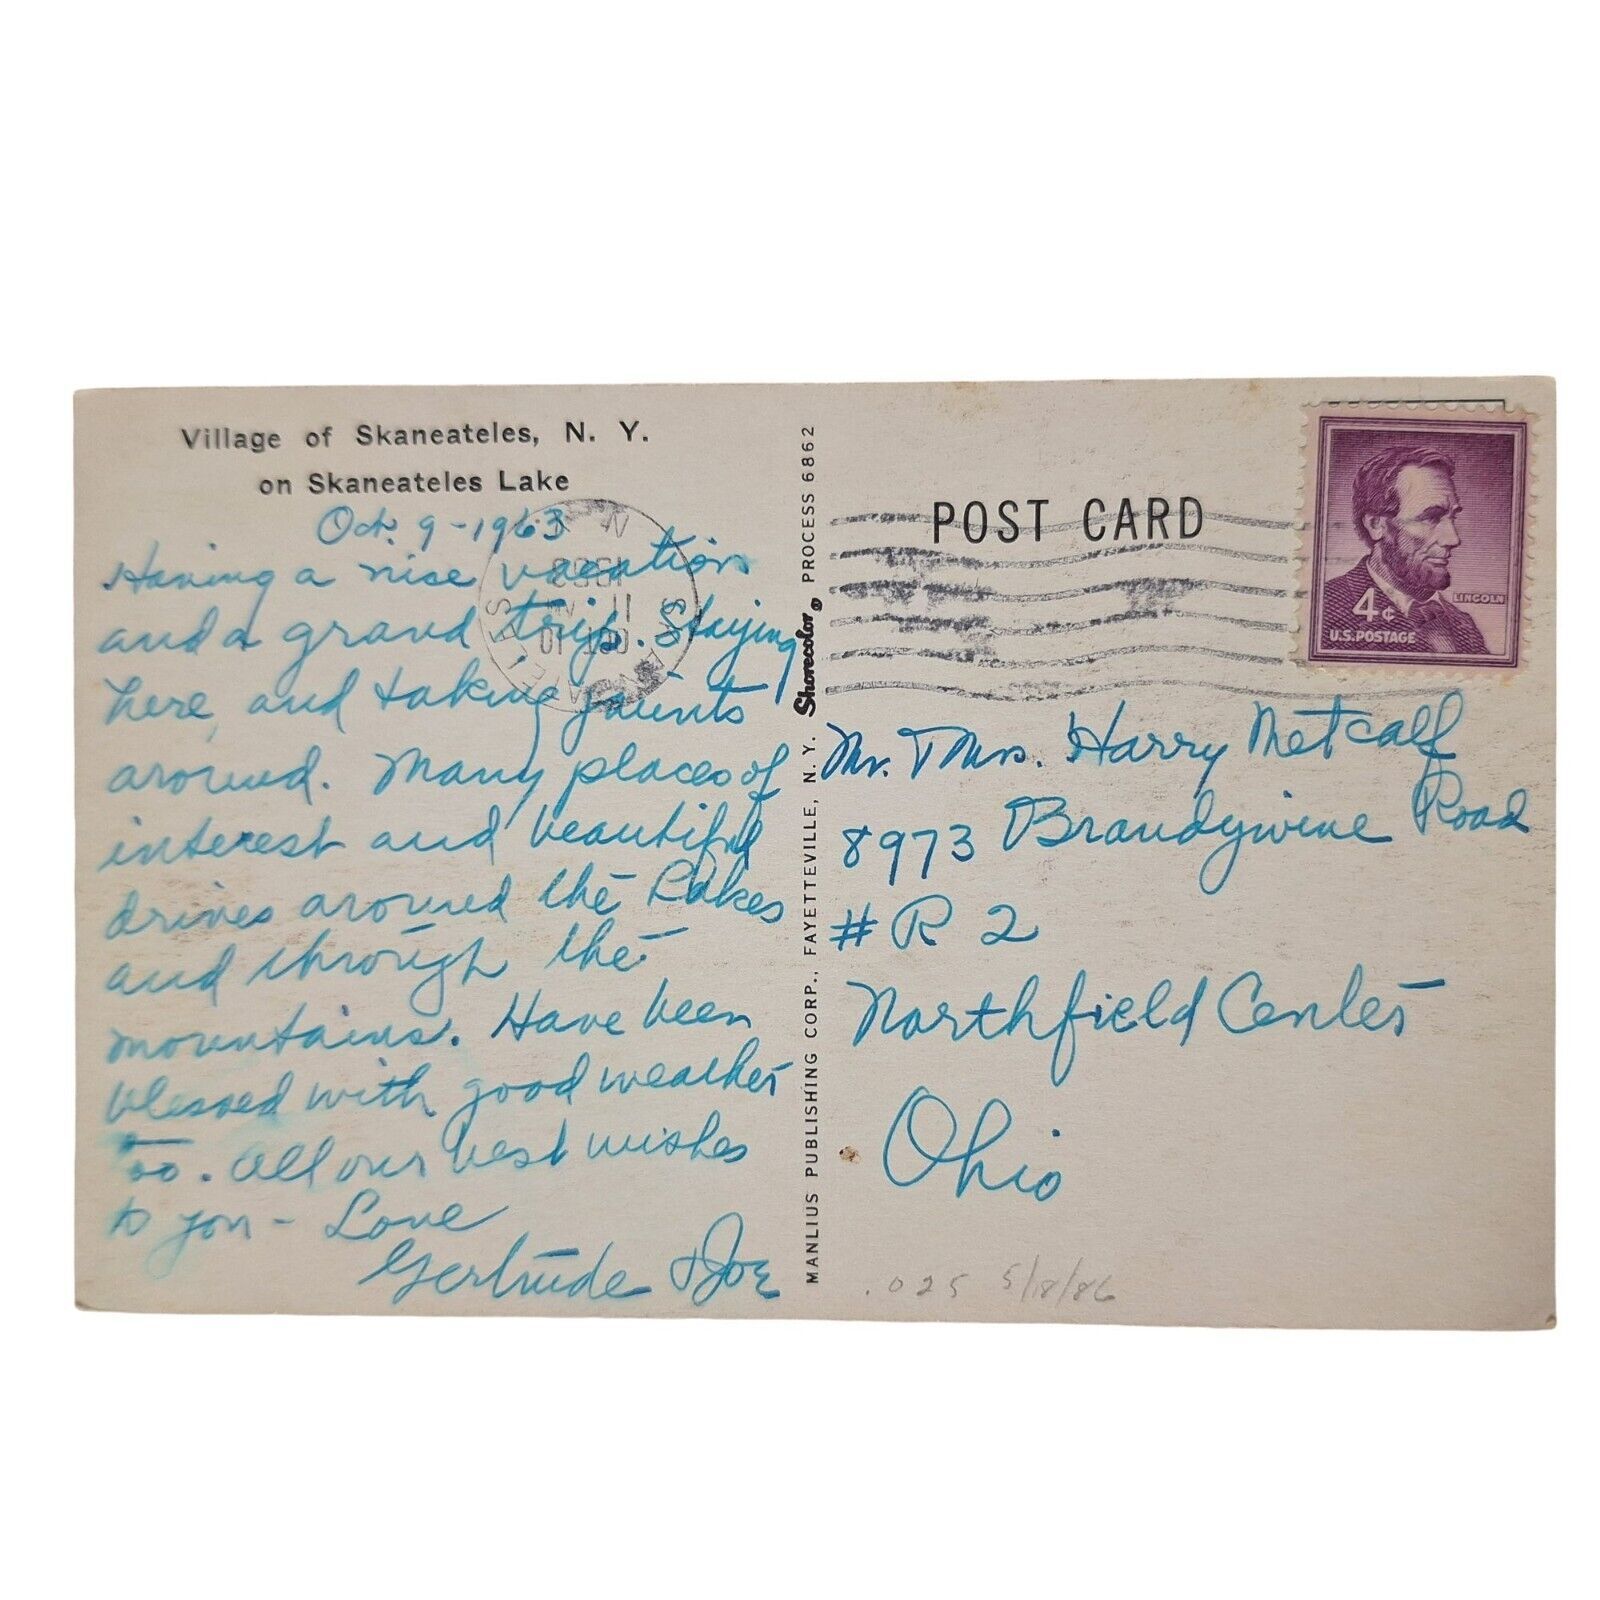 Village of Skaneateles, N. Y.
on Skaneateles Lake
Oct. 9-1963
Having a nice vacation
and a grand trip. Staying
here, and taking jaunts
around. Many places of
interest and beautiful
drives around the Lakes
and through the
mountains. Have been
blessed with good weather
too. All our best wishes
to you - Love
Gertrude & Joe
MANLIUS PUBLISHING CORP., FAYETTEVILLE, N. Y. Shorecolor® PROCESS 6862
POST CARD
4¢
LINCOLN
U.S. POSTAGE
Mr. & Mrs. Harry Metcalf
8973 Brandywine Road
# R 2
Northfield Center
Ohio
.025 5/18/86